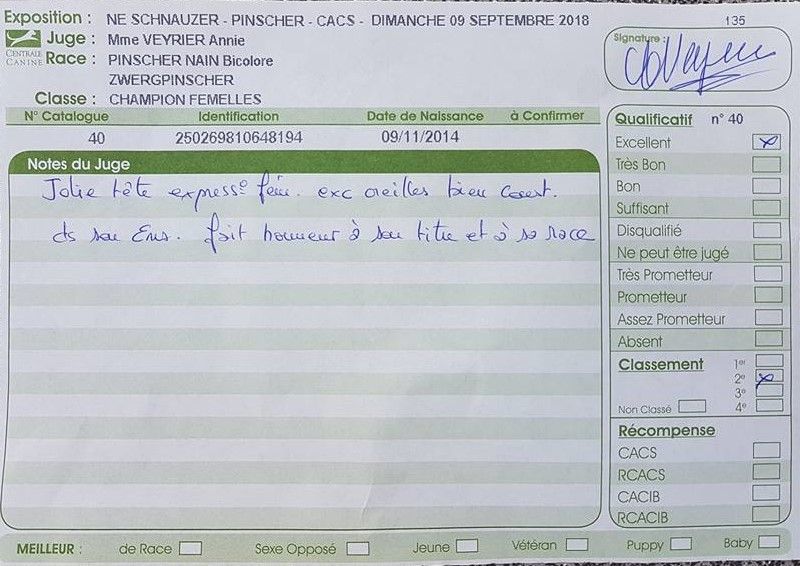 Exposition : NE SCHNAUZER - PINSCHER - CACS - DIMANCHE 09 SEPTEMBRE 2018 135
Juge : Mme VEYRIER Annie Signature :
CENTRALE CANINE Race : PINSCHER NAIN Bicolore
ZWERGPINSCHER
Classe : CHAMPION FEMELLES
N° Catalogue Identification Date de Naissance à Confirmer
40 250269810648194 09/11/2014
Notes du Juge
Jolie tête expressᵉ fém. exc oreilles bien const.
ds son Ens. fait honneur à son titre et à sa race
Qualificatif n° 40
Excellent x
Très Bon
Bon
Suffisant
Disqualifié
Ne peut être jugé
Très Prometteur
Prometteur
Assez Prometteur
Absent
Classement 1er
2e x
3e
Non Classé 4e
Récompense
CACS
RCACS
CACIB
RCACIB
MEILLEUR : de Race Sexe Opposé Jeune Vétéran Puppy Baby